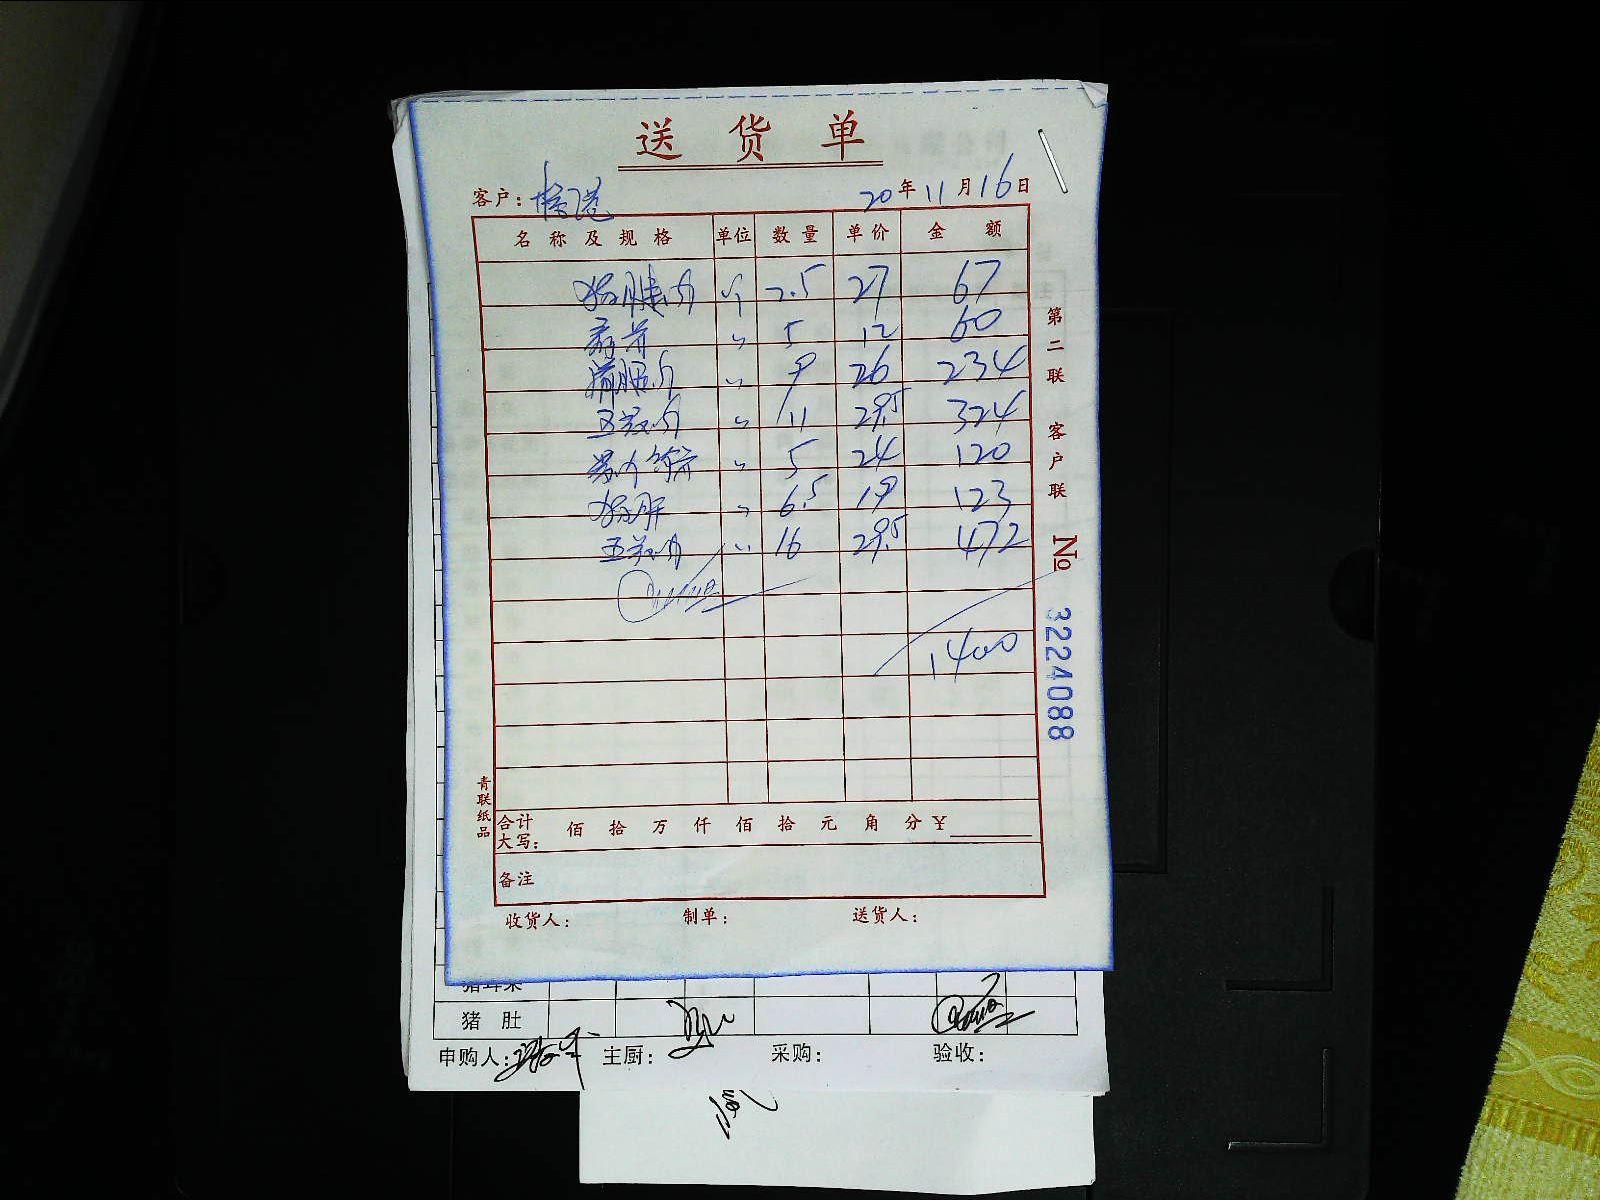 送货单
客户：
20年11月16日
名称及规格 单位 数量 单价 金额
猪腱肉 斤 2.5 27 67
5 12 60
9 26 234
五花肉 〃 11 29.5 324
5 24 120
猪肝 〃 6.5 19 123
五花肉 〃 16 29.5 472
1400
合计大写： 佰 拾 万 仟 佰 拾 元 角 分 ¥
备注
收货人： 制单： 送货人：
第二联 客户联
No 3224088
青联纸品
猪耳朵
猪肚
申购人： 主厨： 采购： 验收：